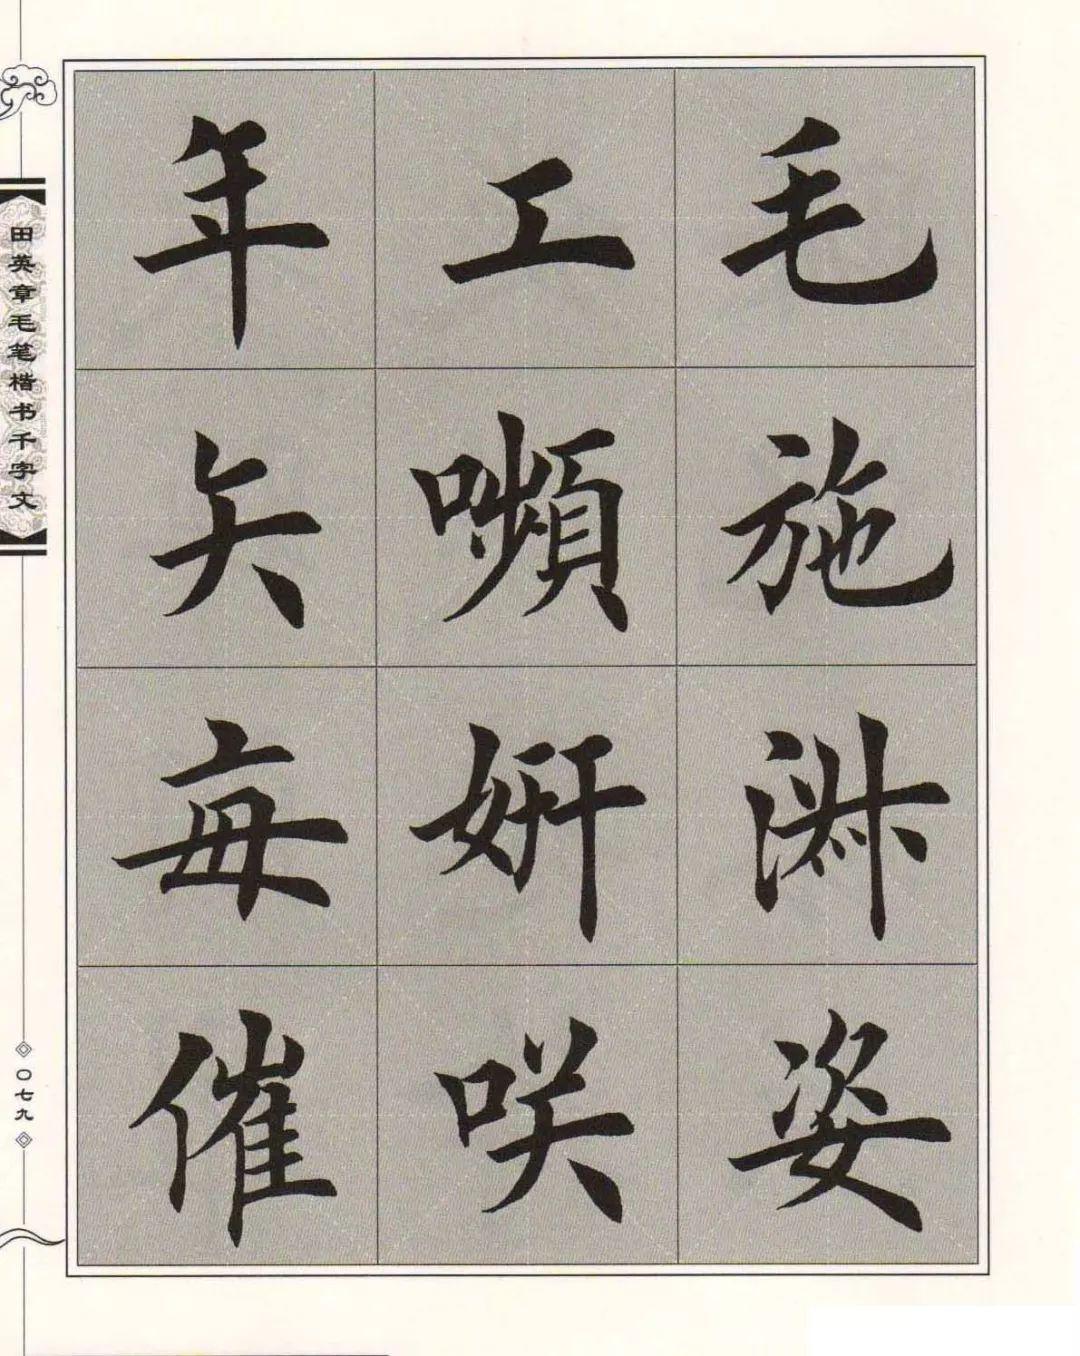 毛施淑姿
工嚬妍咲
年矢每催
田英章毛笔楷书千字文
〇七九